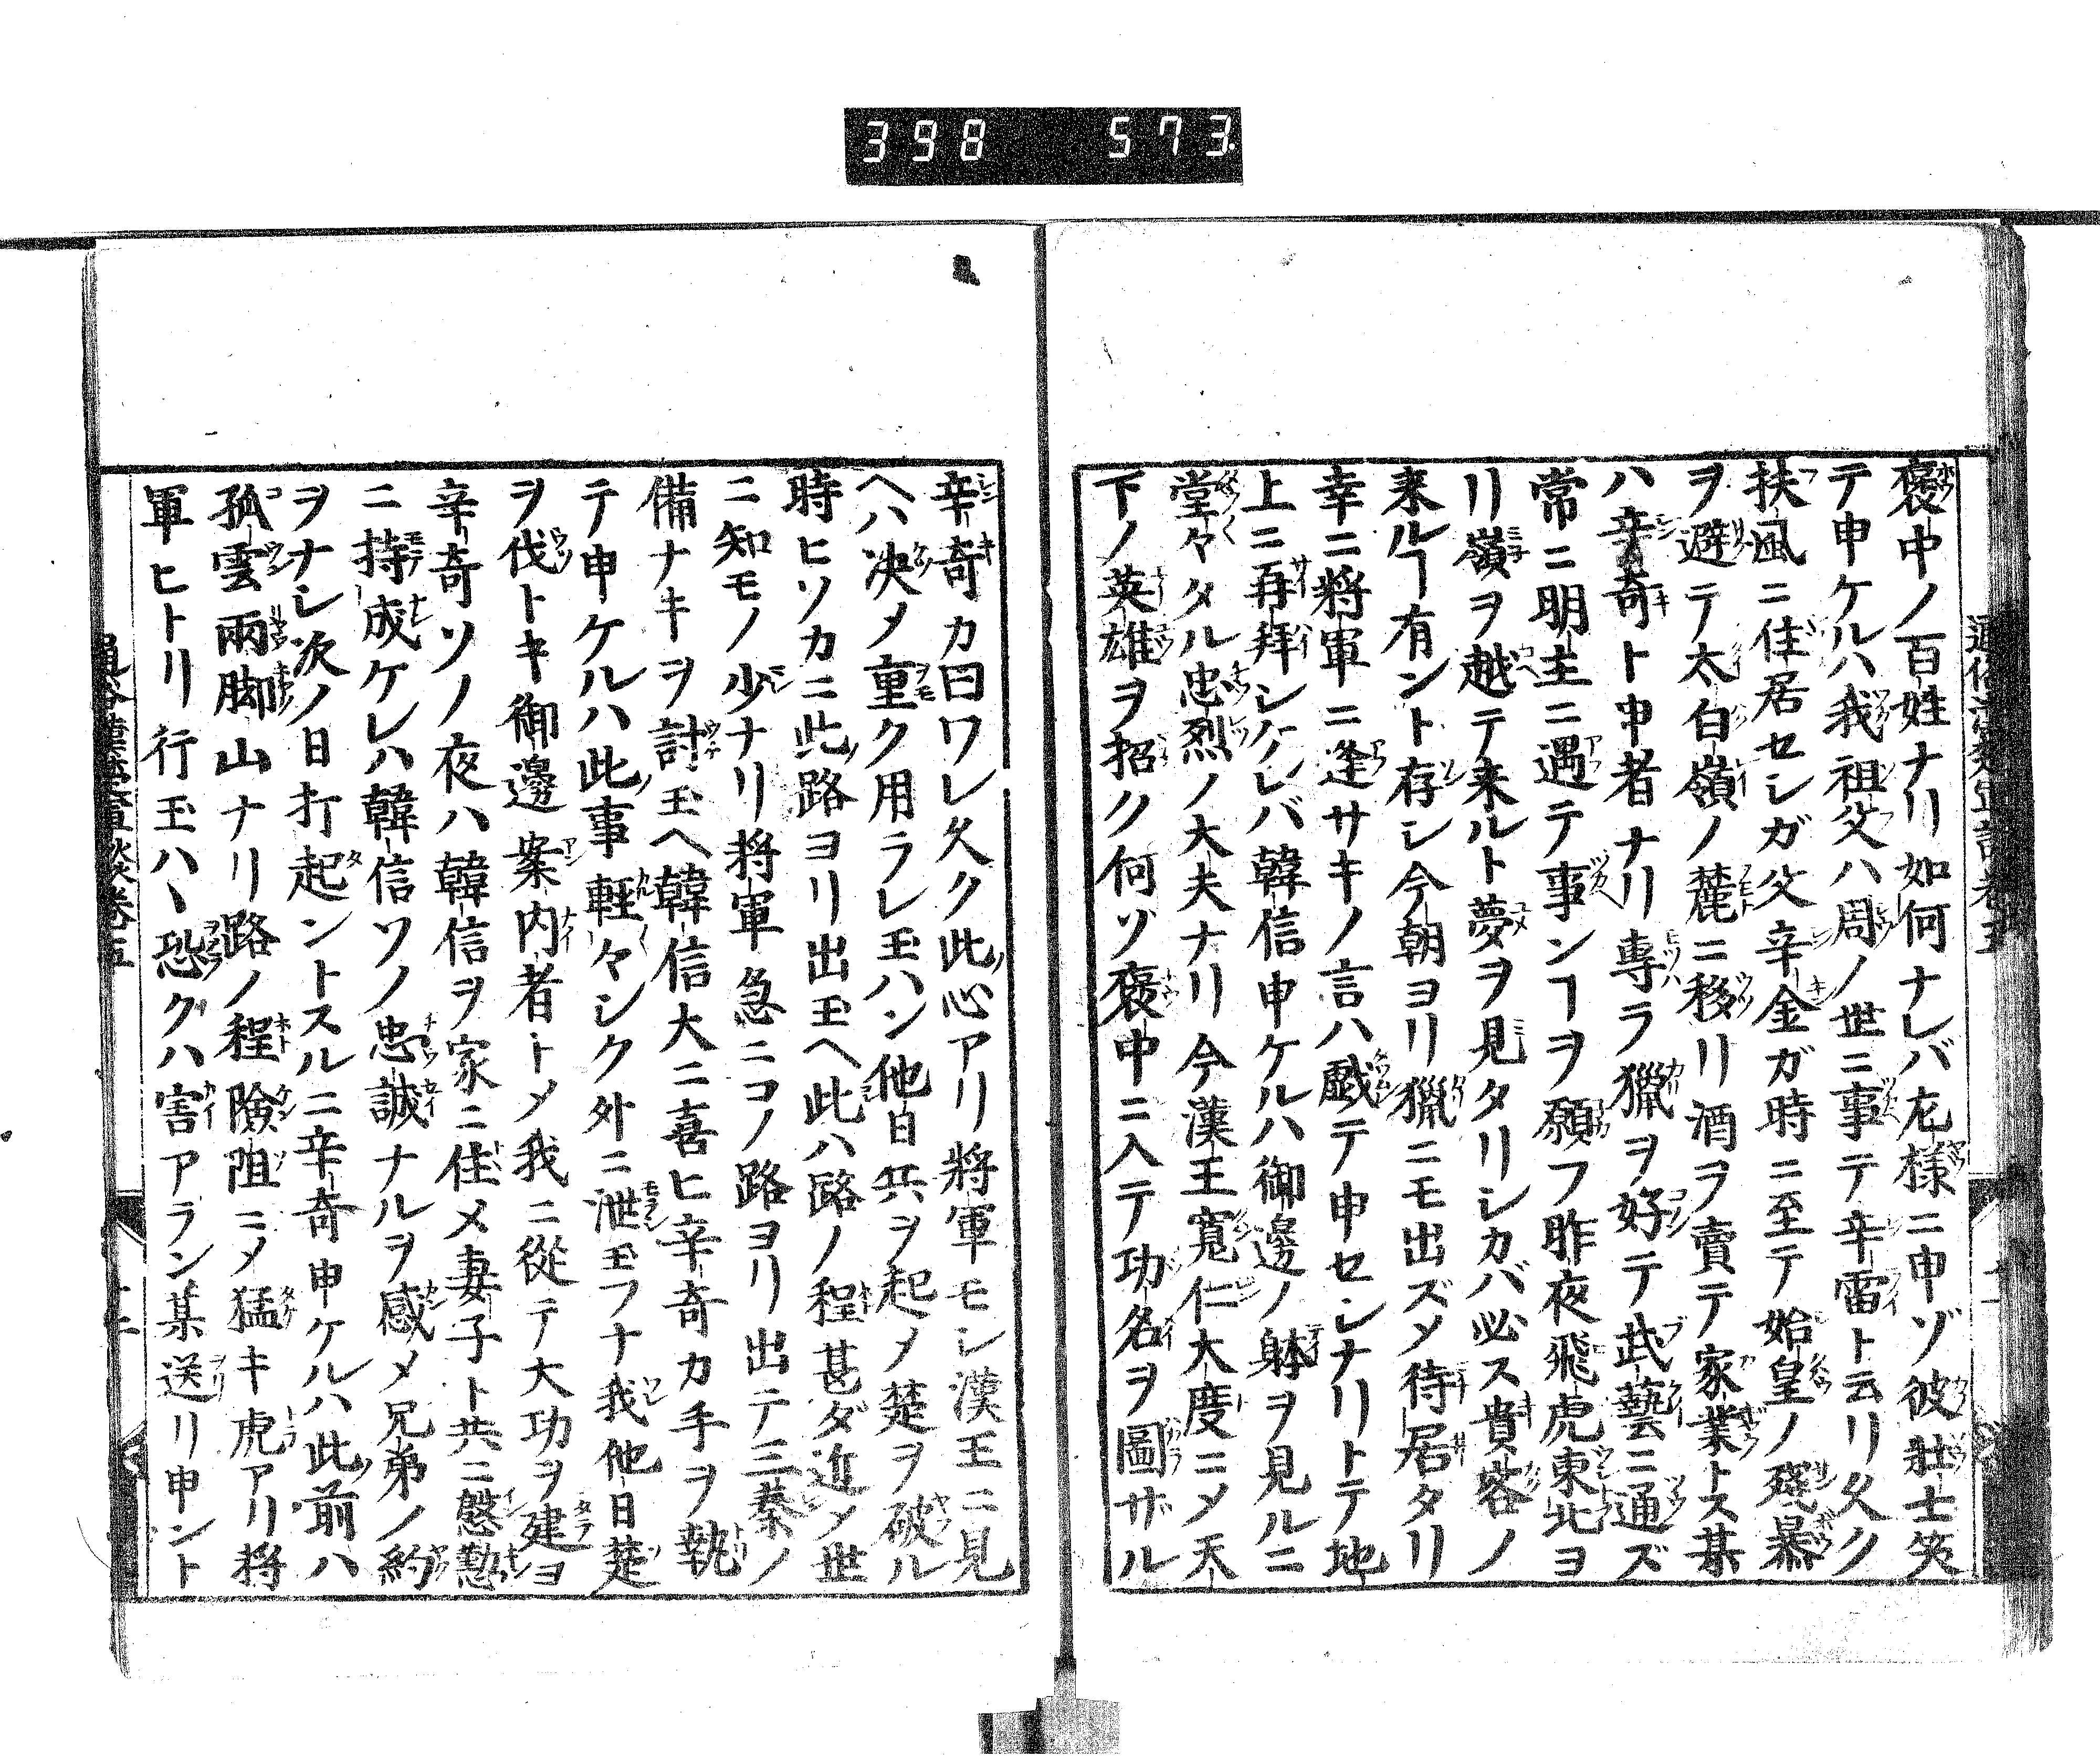 398 573
褒中ノ百姓ナリ如何ナレバ左様ニ申ゾ彼壮士笑
テ申ケルハ我祖父ハ周ノ世ニ事テ辛雷ト云リ久ク
扶風ニ住居セシガ父辛金ガ時ニ至テ始皇ノ殘暴
ヲ避テ太白嶺ノ麓ニ移リ酒ヲ賣テ家業トス某
ハ辛奇ト申者ナリ專ラ獵ヲ好テ武藝ニ通ズ
常ニ明主ニ遇テ事ンヿヲ願フ昨夜飛虎東北ヨ
リ嶺ヲ越テ来ルト夢ヲ見タリシカバ必ス貴客ノ
来ルヿ有ント存シ今朝ヨリ獵ニモ出ズメ待居タリ
幸ニ將軍ニ逢サキノ言ハ戯テ申セシナリトテ地
上ニ再拜シケレバ韓信申ケルハ御邊ノ躰ヲ見ルニ
堂々タル忠烈ノ大夫ナリ今漢王寬仁大度ニメ天
下ノ英雄ヲ招ク何ゾ褒中ニ入テ功名ヲ圖ザル
辛奇カ曰ワレ久ク此心アリ將軍モシ漢王ニ見
ヘハ决メ重ク用ラレ玉ハン他日兵ヲ起メ楚ヲ破ル
時ヒソカニ此路ヨリ出玉ヘ此ハ路ノ程甚ダ近メ世
ニ知モノ少ナリ將軍急ニコノ路ヨリ出テ三秦ノ
備ナキヲ討玉ヘ韓信大ニ喜ヒ辛奇カ手ヲ執
テ申ケルハ此事輕々シク外ニ泄玉フナ我他日楚
ヲ伐トキ御邊案内者トメ我ニ從テ大功ヲ建ヨ
辛奇ソノ夜ハ韓信ヲ家ニ住メ妻子ト共ニ慇懃
ニ持成ケレハ韓信ソノ忠誠ナルヲ感メ兄弟ノ約
ヲナシ次ノ日打起ントスルニ辛奇申ケルハ此前ハ
孤雲兩脚山ナリ路ノ程險阻ニメ猛キ虎アリ將
軍ヒトリ行玉ハヽ恐クハ害アラン某送リ申ント